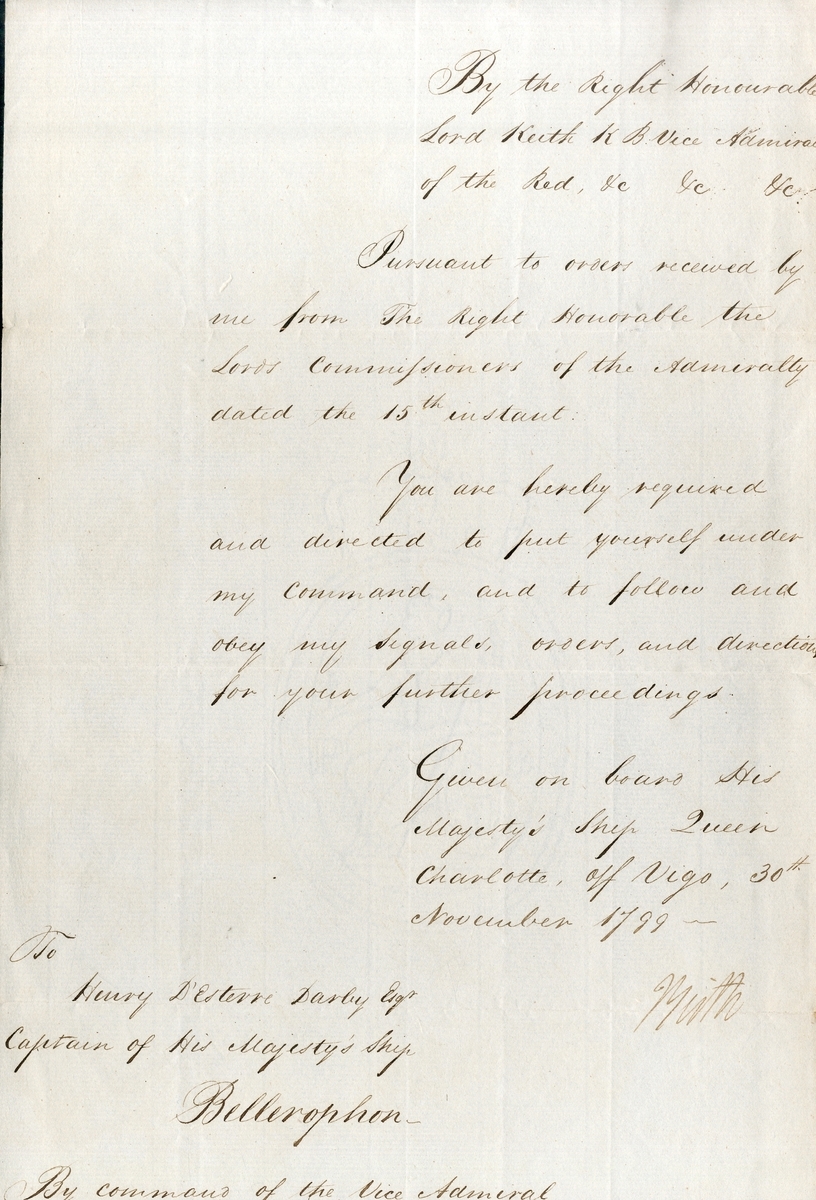 By the Right Honourable
Lord Keith K B Vice Admiral
of the Red, &c &c &c:
Pursuant to orders received by
me from The Right Honorable the
Lords Commissioners of the Admiralty
dated the 15th instant:
You are hereby required
and directed to put yourself under
my Command, and to follow and
obey my signals, orders, and directions
for your further proceedings.
Given on board His
Majesty's Ship Queen
Charlotte, off Vigo, 30th
November 1799 —
Keith
To
Henry D'Esterre Darby Esqr
Captain of His Majesty's Ship
Bellerophon-
By command of the Vice Admiral